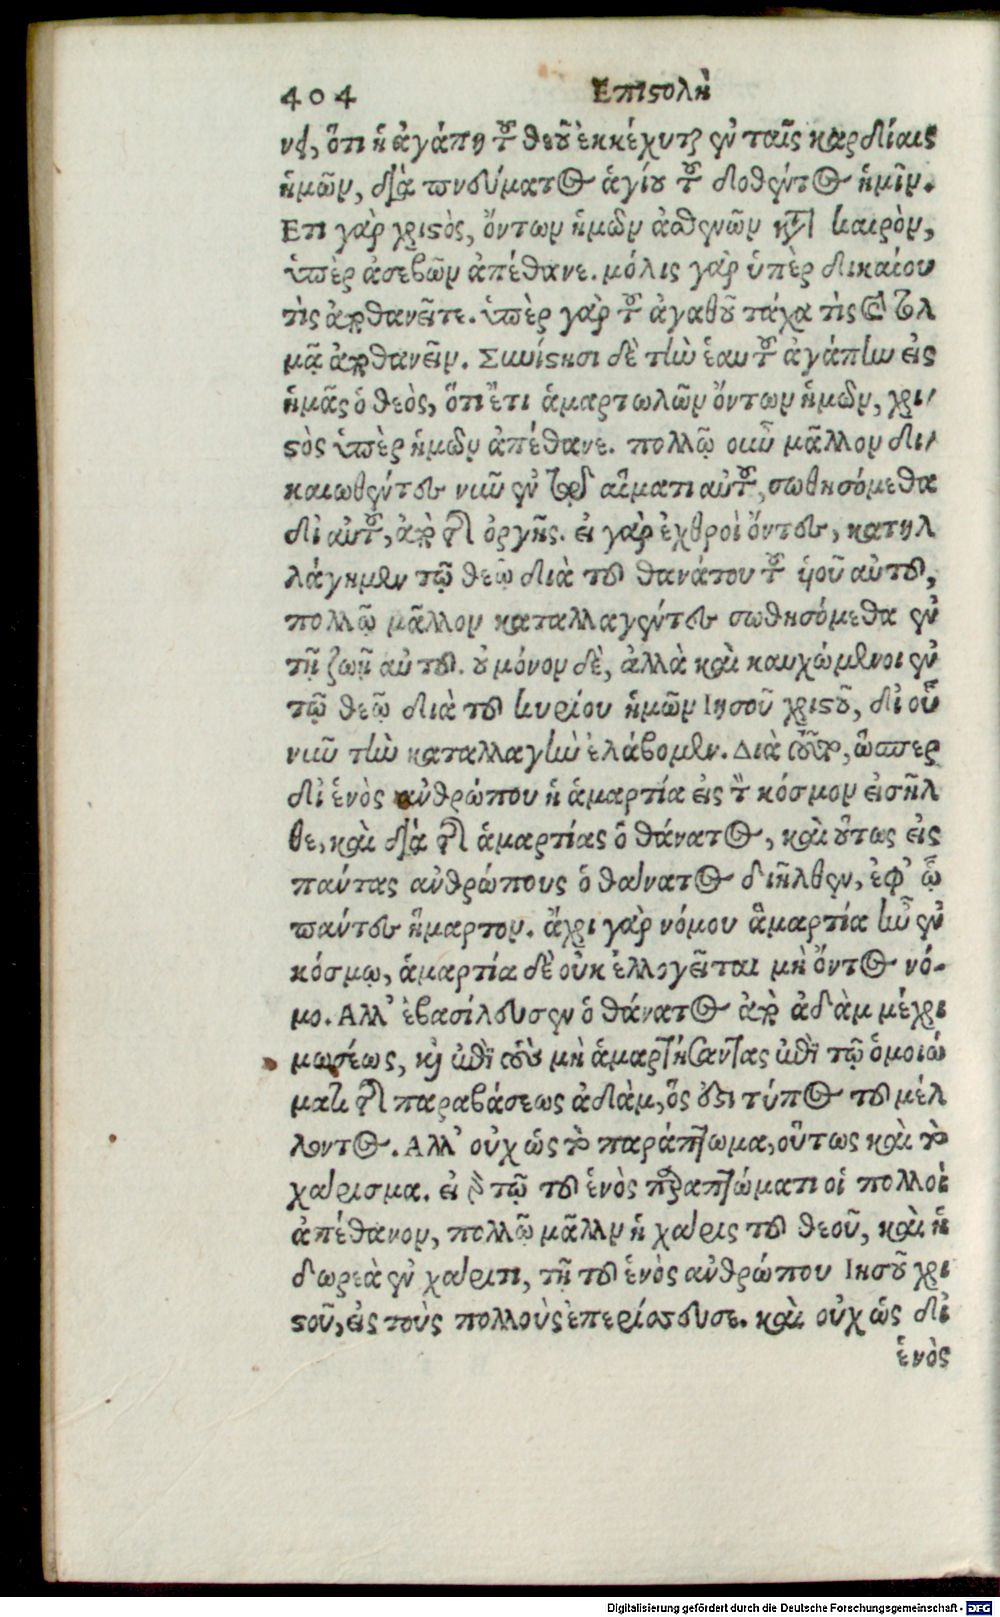 404 Επιςολὴ
νει, ὅτι ἡ ἀγάπη τοῦ θεοῦ ἐκκέχυται ἐν ταῖς καρδίαις
ἡμῶν, διὰ πνεύματος ἁγίου τοῦ δοθέντος ἡμῖν.
Ετι γὰρ χριςὸς, ὄντων ἡμῶν ἀσθενῶν κατὰ καιρὸν,
ὑπὲρ ἀσεβῶν ἀπέθανε. μόλις γὰρ ὑπὲρ δικαίου
τὶς ἀποθανεῖτε. ὑπὲρ γὰρ τοῦ ἀγαθοῦ τάχα τὶς καὶ τολ
μᾷ ἀποθανεῖν. Συνίςησι δὲ τὴν ἑαυτοῦ ἀγάπην εἰς
ἡμᾶς ὁ θεὸς, ὅτι ἔτι ἁμαρτωλῶν ὄντων ἡμῶν, χρι/
ςὸς ὑπὲρ ἡμῶν ἀπέθανε. πολλῷ οὖν μᾶλλον δι/
καιωθέντες νῦν ἐν τῷ αἵματι αὐτοῦ, σωθησόμεθα
δι αὐτοῦ, ἀπὸ τῆς ὀργῆς. εἰ γὰρ ἐχθροὶ ὄντες, κατηλ
λάγημεν τῷ θεῷ διὰ του θανάτου τοῦ ὑοῦ αὐτου,
πολλῷ μᾶλλον καταλλαγέντες σωθησόμεθα ἐν
τῇ ζωῇ αὐτου. ου μόνον δὲ, ἀλλὰ καὶ καυχώμενοι ἐν
τῷ θεῷ διὰ του κυρίου ἡμῶν Ιησοῦ χριςοῦ, δι οὗ
νῦν τὴν καταλλαγὴν ἐλάβομεν. Διὰ τοῦτο, ὥσπερ
δι ἑνὸς ανθρώπου ἡ ἁμαρτία εἰς τὸν κόσμον εἰσῆλ
θε, καὶ διὰ τῆς ἁμαρτίας ὁ θάνατος, καὶ οὕτως εἰς
πάντας ανθρώπους ὁ θάνατος διῆλθεν, ἐφ’ ᾧ
πάντες ἥμαρτον. ἄχρι γὰρ νόμου ἁμαρτία ἦν ἐν
κόσμῳ, ἁμαρτία δὲ οὐκ ἐλλογεῖται μὴ ὄντος νό-
μο. Αλλ’ ἐβασίλευσεν ὁ θάνατος ἀπὸ ἀδὰμ μέχρι
μωσέως, καὶ ἐπὶ τοὺς μὴ ἁμαρτήσαντας ἐπὶ τῷ ὁμοιώ
ματι τῆς παραβάσεως ἀδὰμ, ὅς ἐςι τύπος του μέλ
λοντος. Αλλ’ οὐχ ὡς τὸ παράπτωμα, οὕτως καὶ τὸ
χάρισμα. εἰ γὰρ τῷ του ἑνὸς παραπτώματι οἱ πολλοὶ
ἀπέθανον, πολλῷ μᾶλλν ἡ χάρις του θεοῦ, καὶ ἡ
δωρεὰ ἐν χάριτι, τῇ του ἑνὸς ανθρώπου Ιησοῦ χρι
ςοῦ, εἰς τοὺς πολλοὺς ἐπερίσσευσε. καὶ οὐχ ὡς δι
ἑνὸς
Digitalisierung gefördert durch die Deutsche Forschungsgemeinschaft - DFG